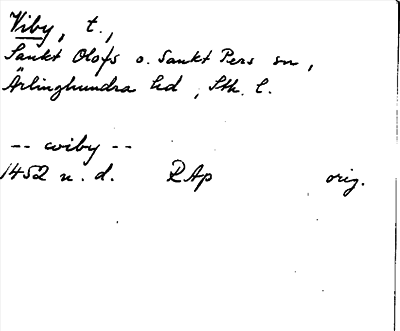 Viby, t.,
Sankt Olofs o. Sankt Pers sn,
Ärlinghundra hd, Sth. l.
-- wiby --
1452 u. d. RAp orig.